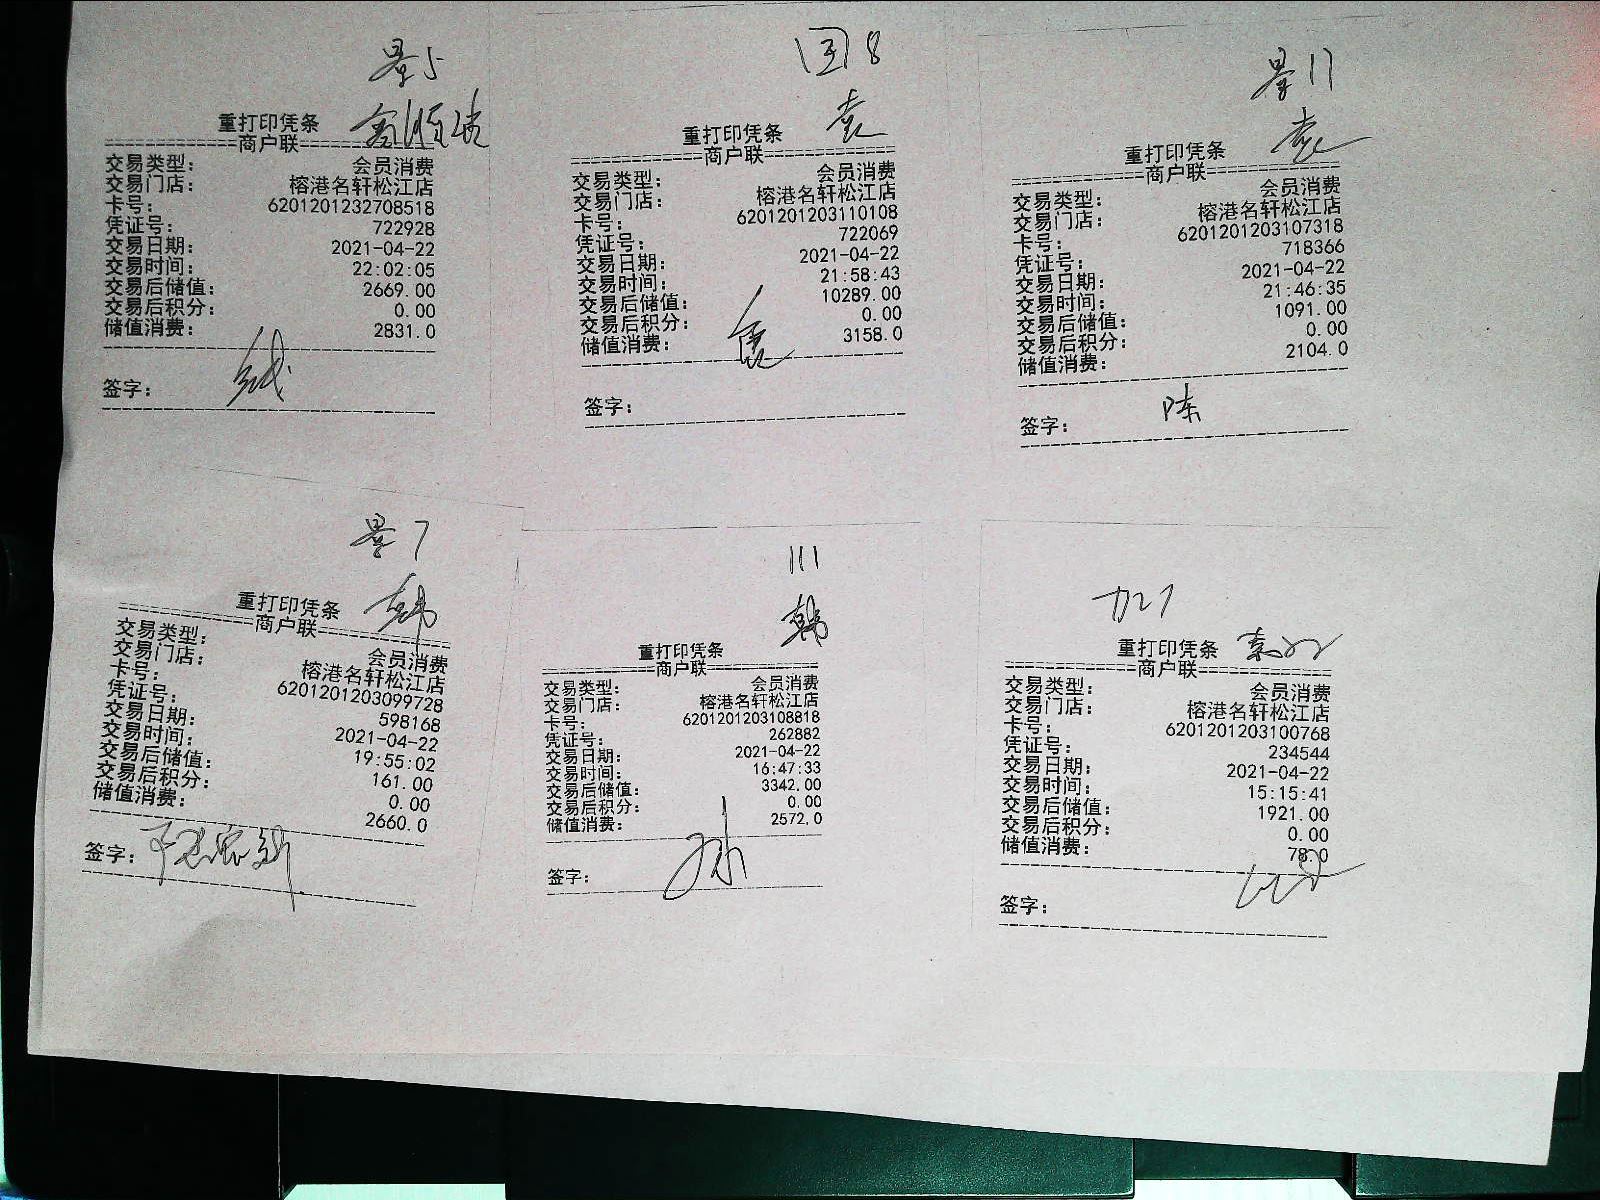 景5
重打印凭条
商户联
交易类型： 会员消费
交易门店： 榕港名轩松江店
卡号： 6201201232708518
凭证号： 722928
交易日期： 2021-04-22
交易时间： 22:02:05
交易后储值： 2669.00
交易后积分： 0.00
储值消费： 2831.0
签字：
国8
袁
重打印凭条
商户联
交易类型： 会员消费
交易门店： 榕港名轩松江店
卡号： 6201201203110108
凭证号： 722069
交易日期： 2021-04-22
交易时间： 21:58:43
交易后储值： 10289.00
交易后积分： 0.00
储值消费： 3158.0
签字：
景11
袁
重打印凭条
商户联
交易类型： 会员消费
交易门店： 榕港名轩松江店
卡号： 6201201203107318
凭证号： 718366
交易日期： 2021-04-22
交易时间： 21:46:35
交易后储值： 1091.00
交易后积分： 0.00
储值消费： 2104.0
签字： 陈
景7
韩
重打印凭条
商户联
交易类型： 会员消费
交易门店： 榕港名轩松江店
卡号： 6201201203099728
凭证号： 598168
交易日期： 2021-04-22
交易时间： 19:55:02
交易后储值： 161.00
交易后积分： 0.00
储值消费： 2660.0
签字：
111
韩
重打印凭条
商户联
交易类型： 会员消费
交易门店： 榕港名轩松江店
卡号： 6201201203108818
凭证号： 262882
交易日期： 2021-04-22
交易时间： 16:47:33
交易后储值： 3342.00
交易后积分： 0.00
储值消费： 2572.0
签字： 孙
重打印凭条
商户联
交易类型： 会员消费
交易门店： 榕港名轩松江店
卡号： 6201201203100768
凭证号： 234544
交易日期： 2021-04-22
交易时间： 15:15:41
交易后储值： 1921.00
交易后积分： 0.00
储值消费： 78.0
签字：